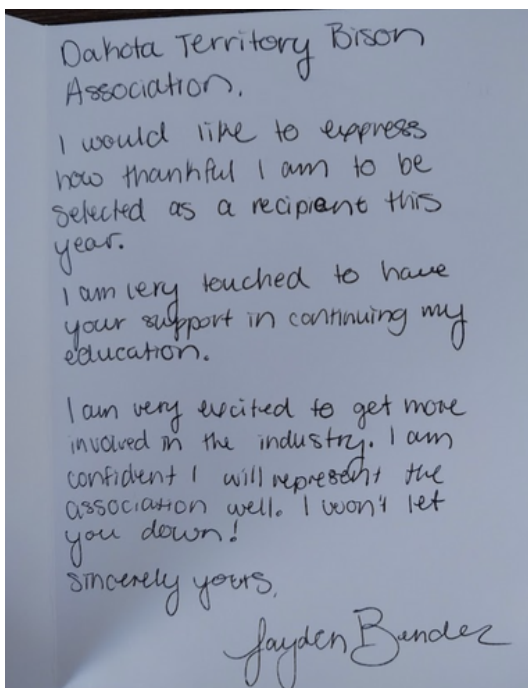 Dakota Territory Bison
Association.
I would like to express
how thankful I am to be
selected as a recipient this
year.
I am very touched to have
your support in continuing my
education.
I am very excited to get more
involved in the industry. I am
confident I will represent the
association well. I won't let
you down!
Sincerely yours,
Jayden Bender